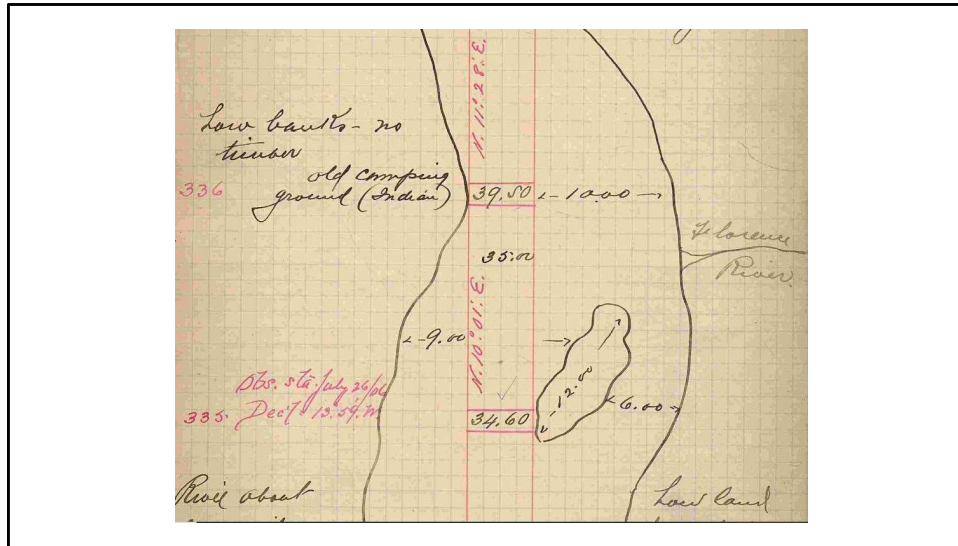 N. 11° 28' E.
Low banks - no
timber
old camping
336 ground (Indian) 39.50 10.00
Florence
River
35.00
N. 10° 01' E.
9.00
12.00
6.00
Obs. sta. July 26/06
335 Dec'l 13° 59' W 34.60
River about
Low land